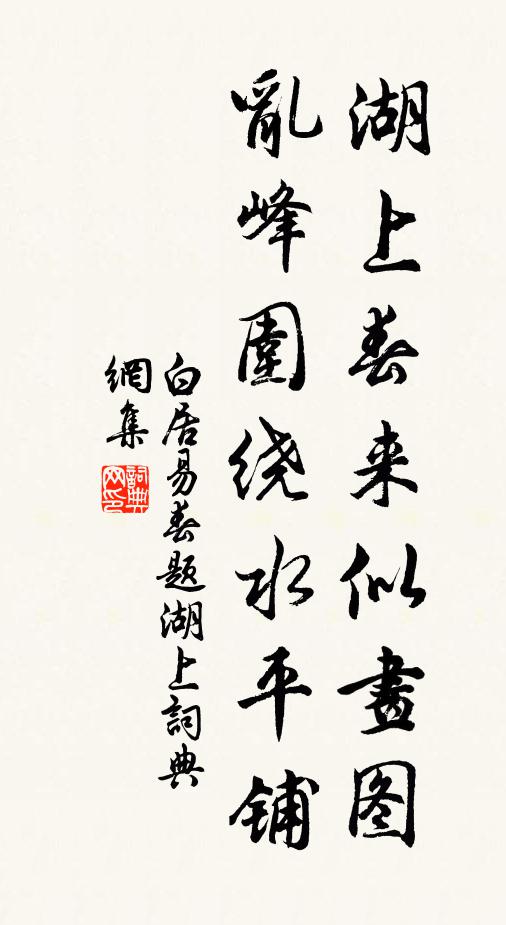 湖上春来似畫图
亂峰圍绕水平铺
白居易春题湖上詞典
網集
詞典網印